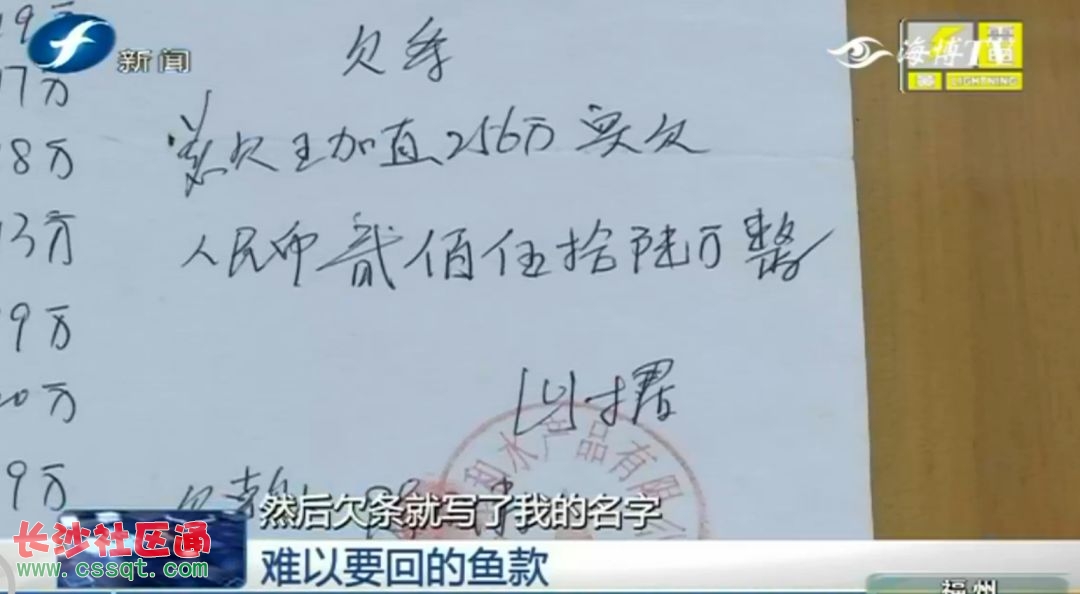 新闻
海博TV
LIGHTNING
欠条
9万
17万
8万
13万
9万
20万
9万
总欠王加直256万 实欠
人民币贰佰伍拾陆万整
以据
水产品有限公
然后欠条就写了我的名字
难以要回的鱼款
福州
长沙社区通
www.cssqt.com